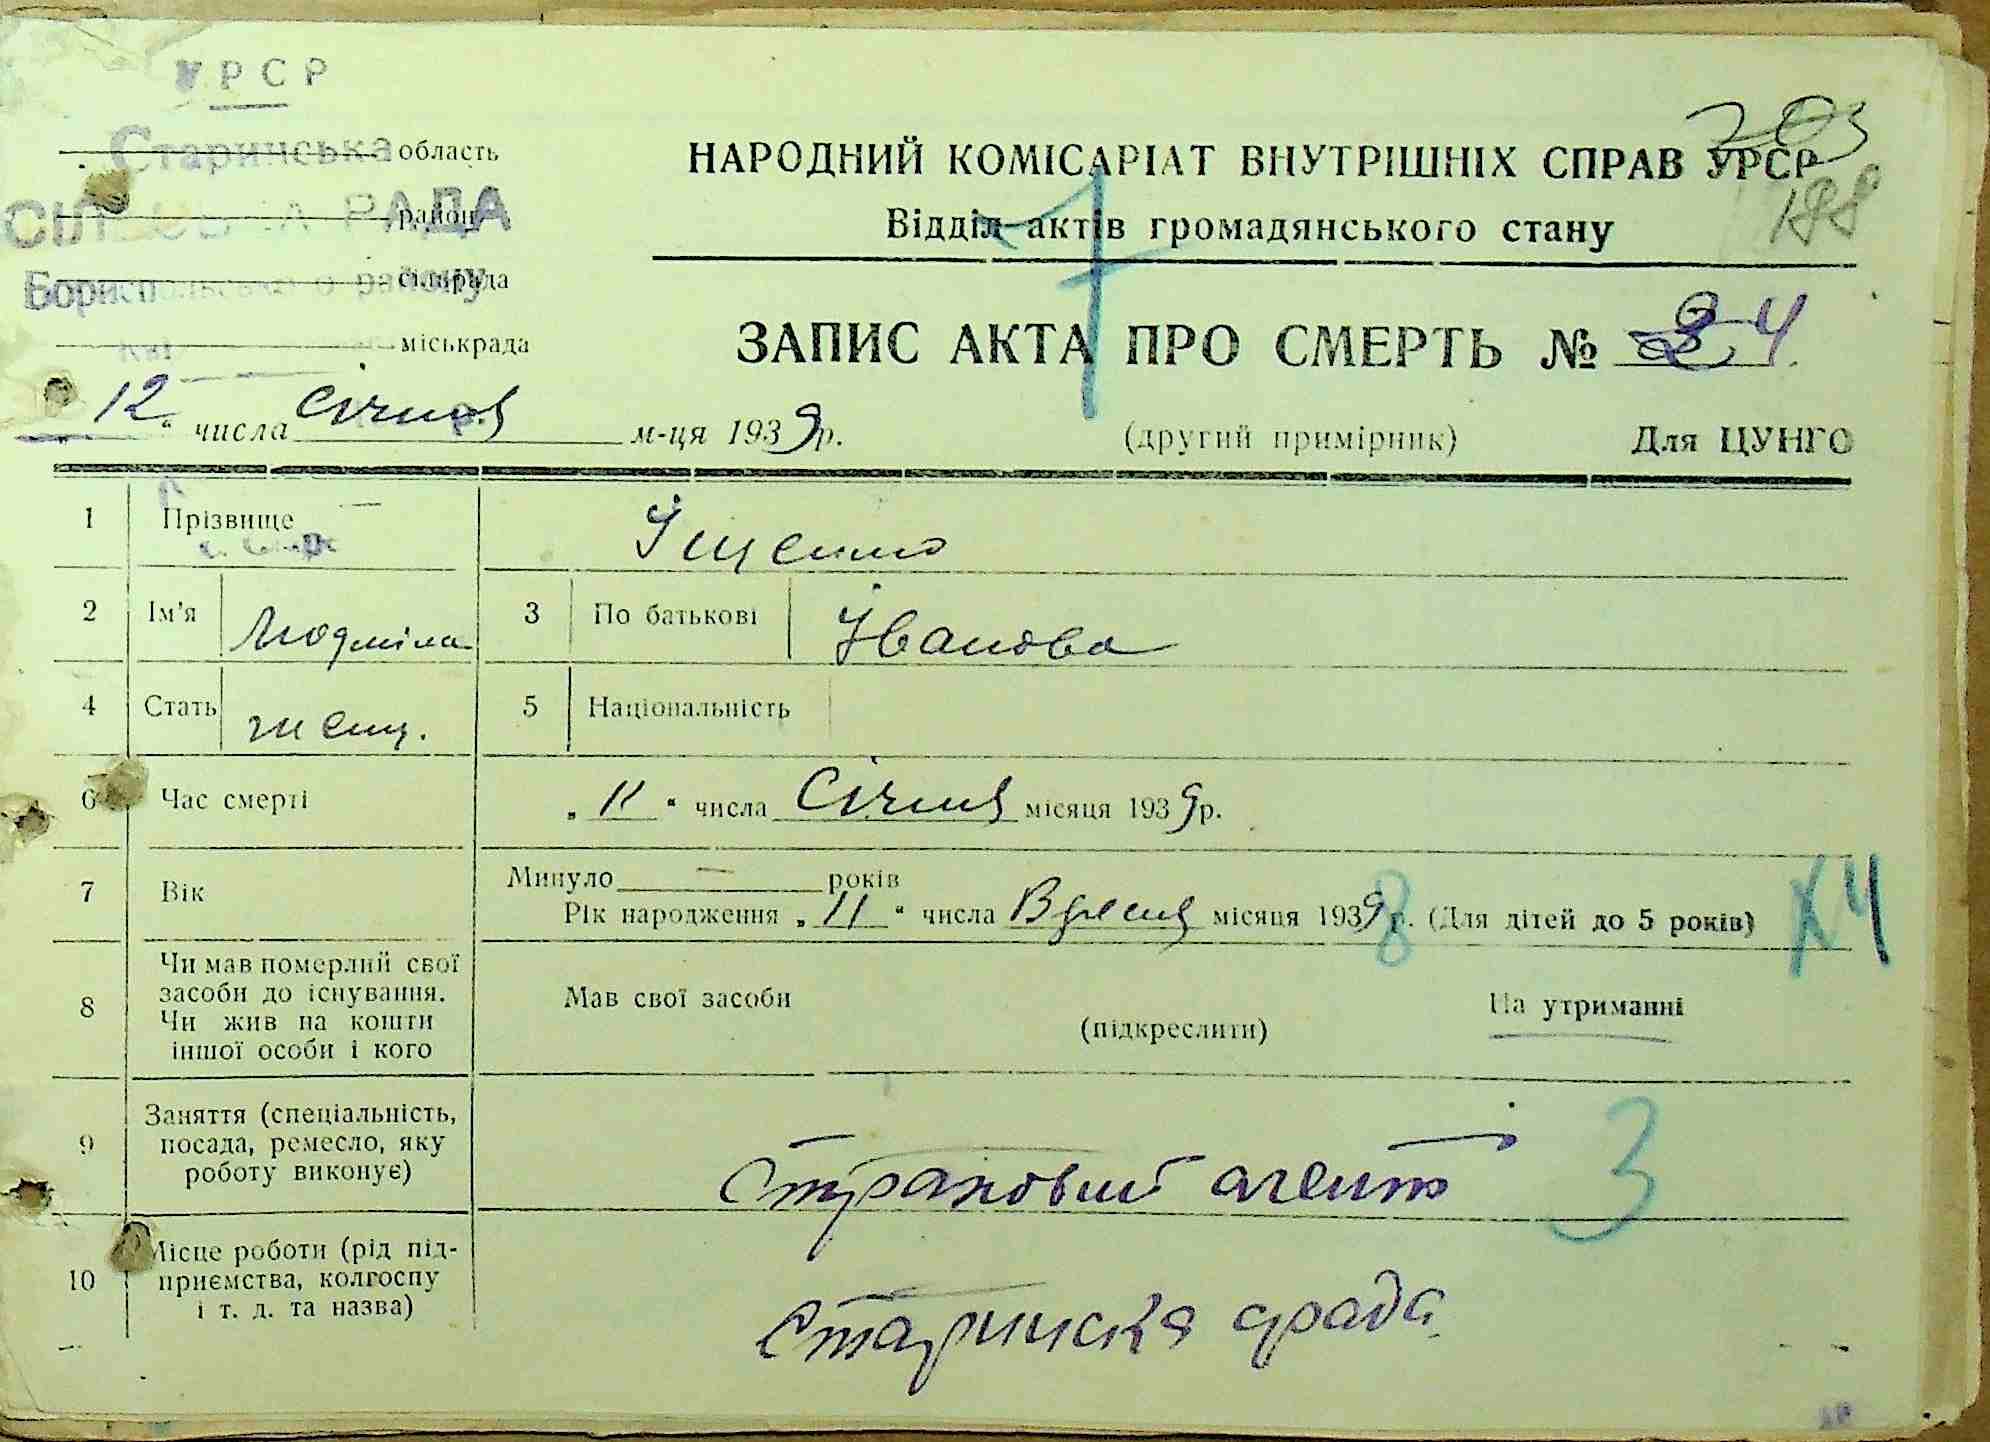 УРСР
Старинська область
СІЛЬСЬКА РАДА район
Бориспольського району сільрада
міськрада
НАРОДНИЙ КОМІСАРІАТ ВНУТРІШНІХ СПРАВ УРСР
203
188
Відділ актів громадянського стану
7
ЗАПИС АКТА ПРО СМЕРТЬ № 4
„12“ числа Січня м-ця 1939р.
(другий примірник) Для ЦУНГО
1 Прізвище Іщенко
2 Ім'я Людміла 3 По батькові Іванова
4 Стать жінц. 5 Національність
6 Час смерті „11“ числа Січня місяця 1939р.
7 Вік Минуло — років
Рік народження „11“ числа Вресня місяця 1939р. (Для дітей до 5 років)
8
Х4
8 Чи мав померлий свої засоби до існування. Чи жив на кошти іншої особи і кого
Мав свої засоби (підкреслити) На утриманні
9 Заняття (спеціальність, посада, ремесло, яку роботу виконує)
Страховий агент
3
10 Місце роботи (рід підприємства, колгоспу і т. д. та назва)
Старинска рада